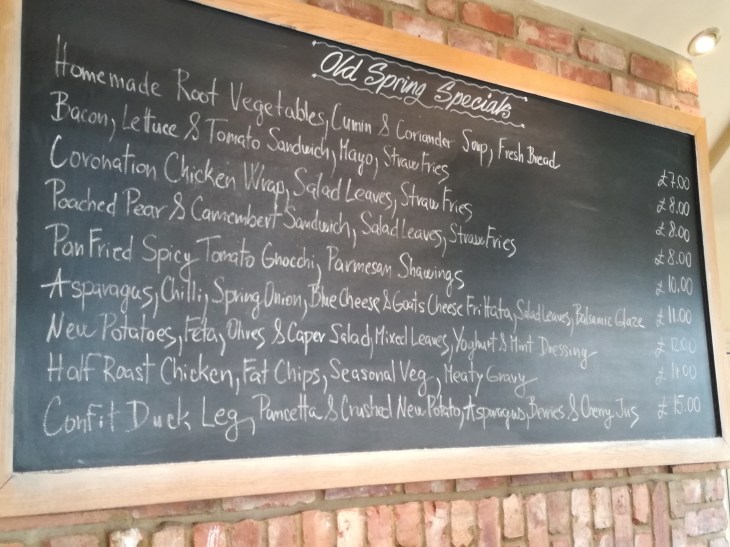 Old Spring Specials
Homemade Root Vegetables, Cumin & Coriander Soup, Fresh Bread £7.00
Bacon, Lettuce & Tomato Sandwich, Mayo, Straw Fries £8.00
Coronation Chicken Wrap, Salad Leaves, Straw Fries £8.00
Poached Pear & Camembert Sandwich, Salad Leaves, Straw Fries £8.00
Pan Fried Spicy Tomato Gnocchi, Parmesan Shavings £10.00
Asparagus, Chilli, Spring Onion, Blue Cheese & Goats Cheese Frittata, Salad Leaves, Balsamic Glaze £11.00
New Potatoes, Feta, Olives & Caper Salad, Mixed Leaves, Yoghurt & Mint Dressing £12.00
Half Roast Chicken, Fat Chips, Seasonal Veg, Meaty Gravy £ 14.00
Confit Duck Leg, Pancetta & Crushed New Potato, Asparagus, Berries & Cherry Jus £15.00